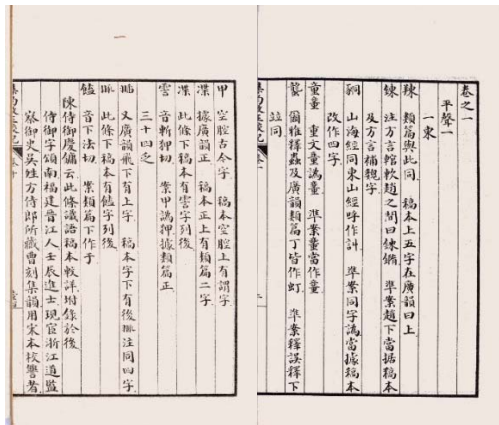 卷之一
平聲一
一東
䍶　類篇與此同　稿本上五字在廣韻曰上
鍊　注方言輨軑趙之間曰鍊鏅　準案趙下當据稿本
及方言補魏字
䍶　山海經同東山經呼作詷　準案同字譌當據稿本
改作四字
童童　重文童譌童　準案童當作童
䗥　爾雅釋蟲及廣韻類篇丁皆作虰　準案釋誤釋下
並同
甲　空腔古今字　稿本空腔上有謂字
渫　據廣韻正　稿本正上有類篇二字
渫　此條下稿本有霅字列後
霅　音斬狎切　案甲譌狎據類篇正
三十四乏
𥆧　又廣韻飛下有上字　稿本字下有後𥆧注同四字
𥆧　此條下稿本有饁字列後
饁　音下法切　案類篇下作于
陳侍御慶鏞云此條識語稿本較詳附錄於後
侍御字頌南福建晉江人壬辰進士現官浙江道監
察御史吳姓方侍郎所藏曹刻集韻用宋本校讐者